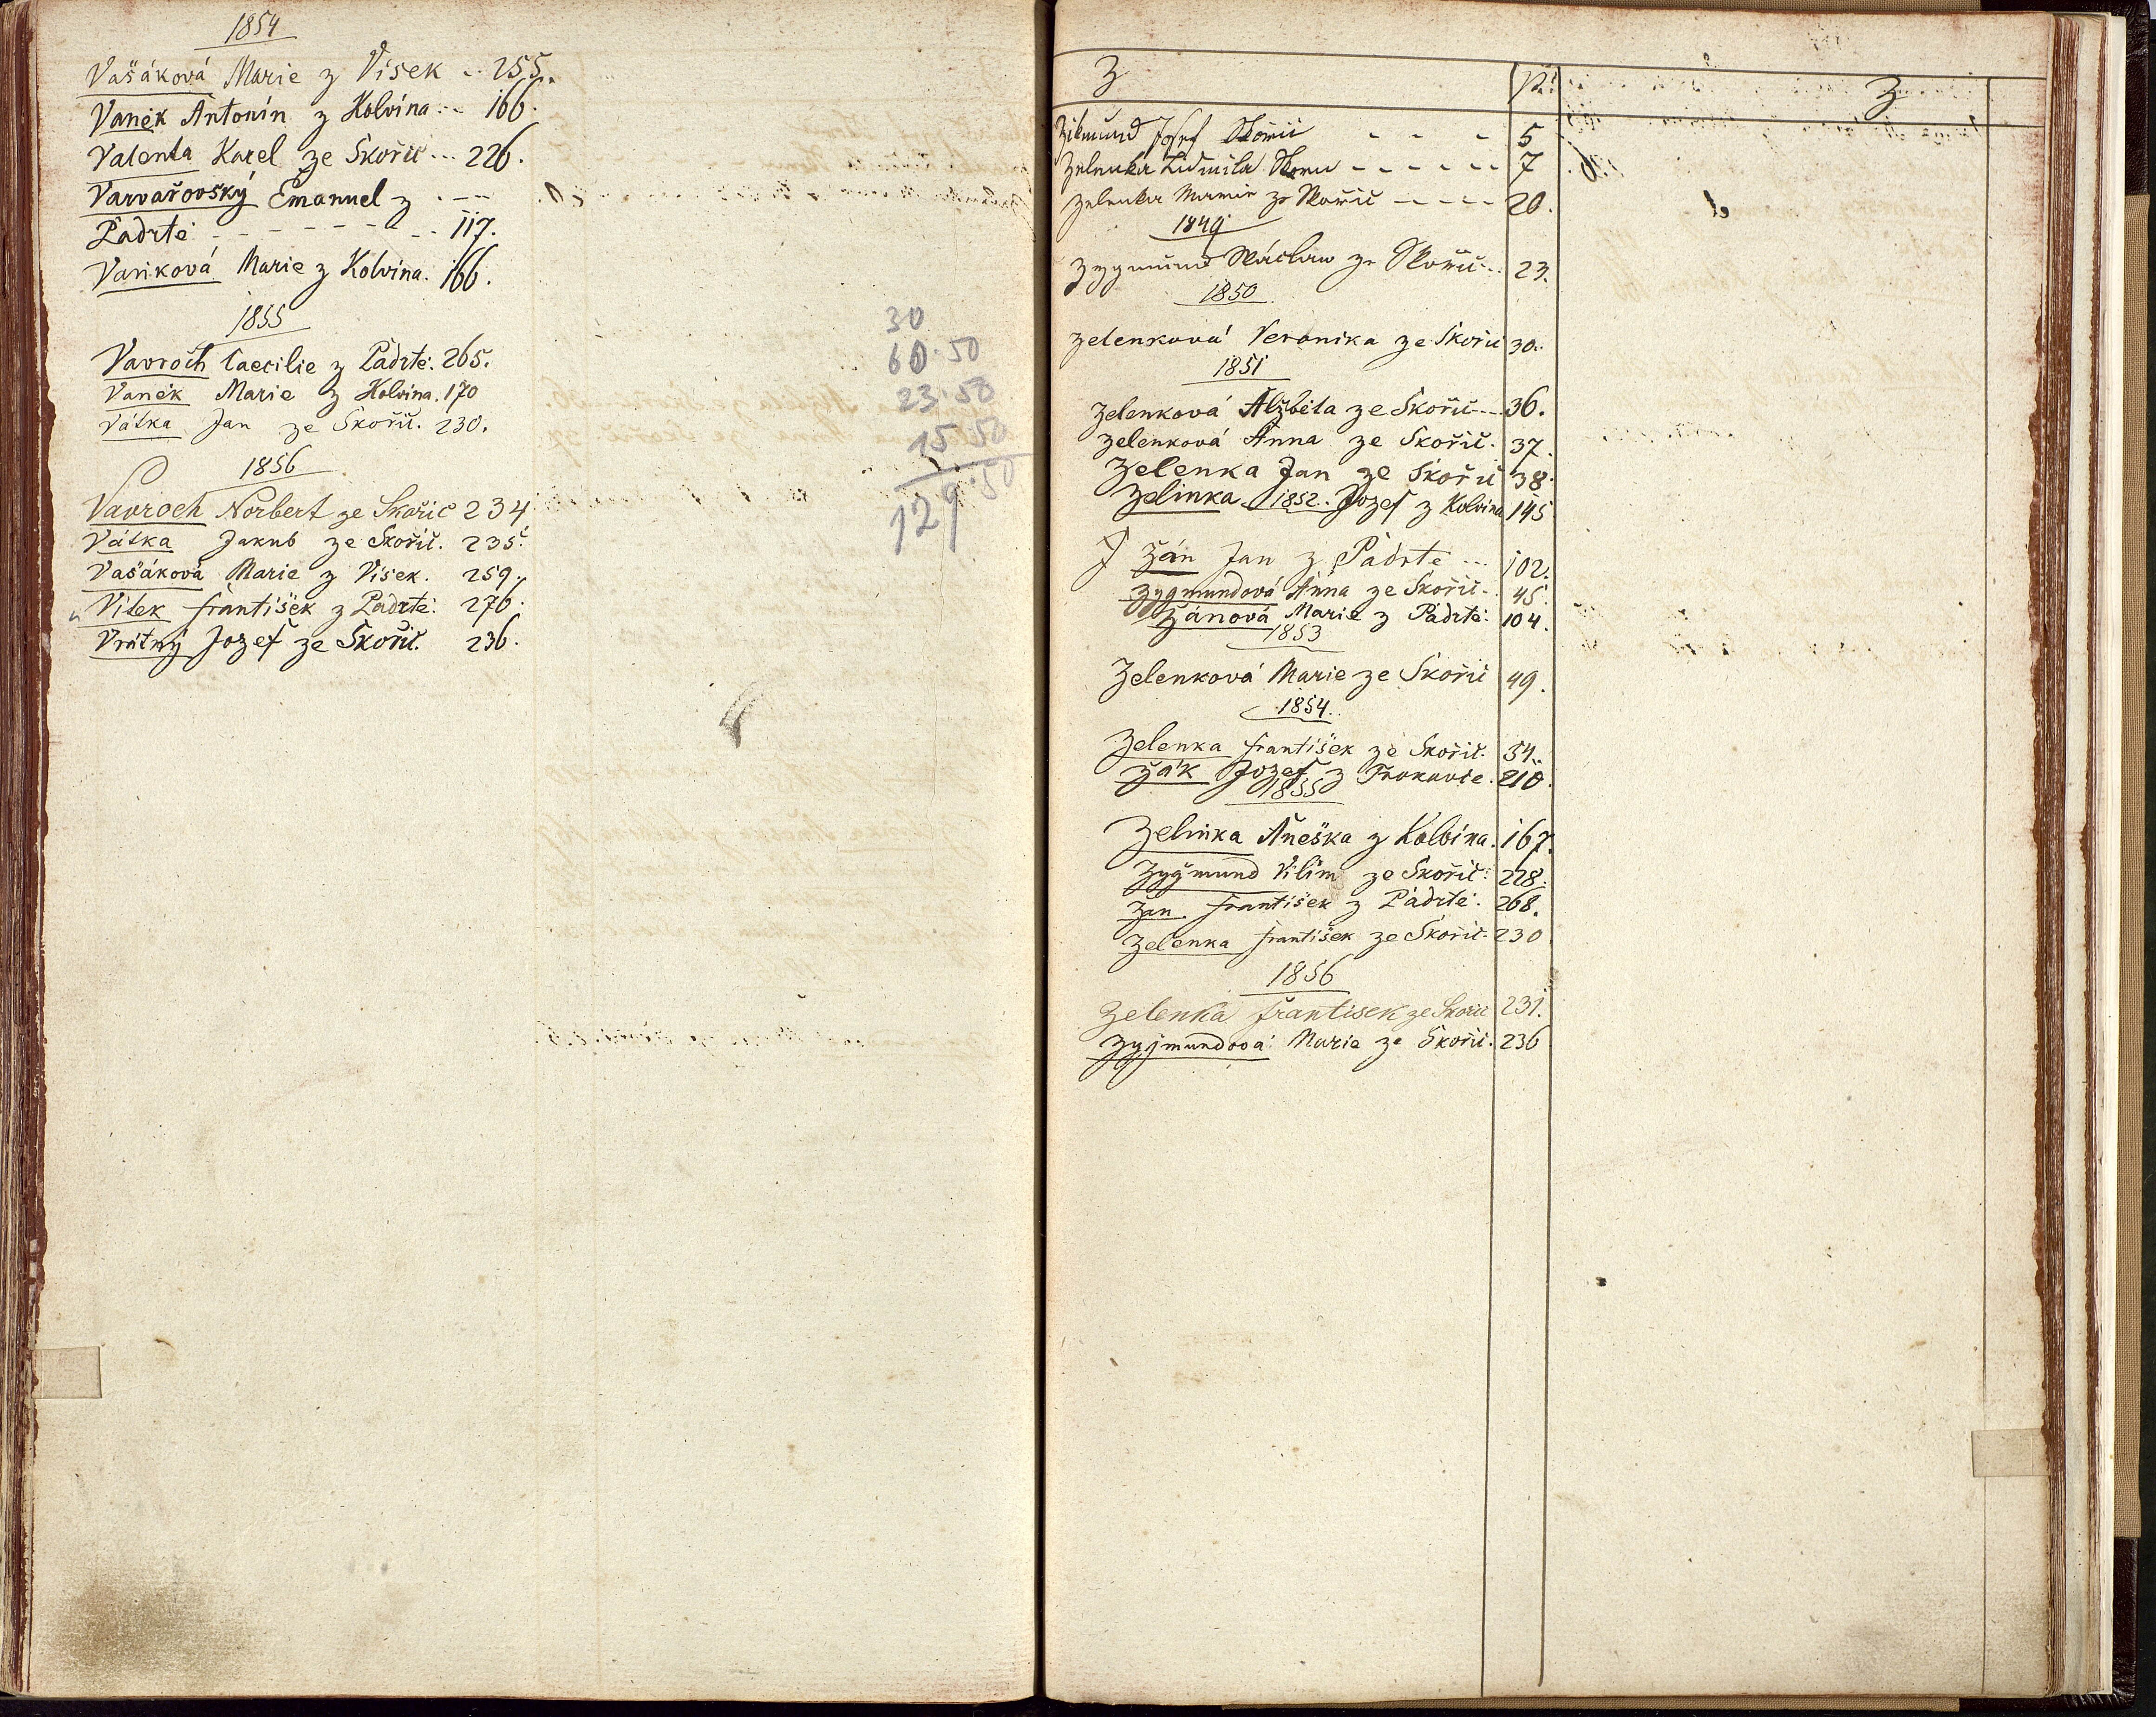 1854
Vašáková Marie z Vísek .. 255.
Vaněk Antonín z Kolvína ... 166.
Valenta Karel ze Skořic ... 226.
Varvařovský Emanuel z . - -
Padrtě - - - - - - - - 117.
Vaňková Marie z Kolvína. 166.
1855
Vavroch Caecilie z Padrtě. 265.
Vaněk Marie z Kolvína. 170
Vátka Jan ze Skořic. 230.
1856
Vavroch Norbert ze Skořic 234
Vátka Jakub ze Skořic. 235.
Vašáková Marie z Vísek. 259.
Vítek František z Padrtě: 276.
Vrátný Jozef ze Skořic. 236.
30
60.50
23.50
15.50
129.50
Z
Z
Zikmund Josef Skořic - - - 5
Zelenka Ludmila - - - - - 7
Zelenka Marie ze Skořic - - - - 20.
1849
Zygmund Wáclaw ze Skořic .. 23.
1850
Zelenková Veronika ze Skořic 30.
1851
Zelenková Alzběta ze Skořic --- 36.
Zelenková Anna ze Skořic. 37.
Zelenka Jan ze Skořic 38.
Zelinka 1852. Jozef z Kolvína 145
Zán Jan z Padrtě ... 102.
Zygmundová Anna ze Skořic -. 45.
Zánová Marie z Padrtě: 104.
1853
Zelenková Marie ze Skořic 49.
1854.
Zelenka František ze Skořic. 54.
Žák Jozef z 210.
1855
Zelinka Aneška z Kolvína. 167.
Zygmund Vilím ze Skořic: 228.
Zan František z Padrtě. 268.
Zelenka František ze Skořic. 230
1856
Zelenka František ze Skořic 231.
Zygmundová Marie ze Skořic. 236